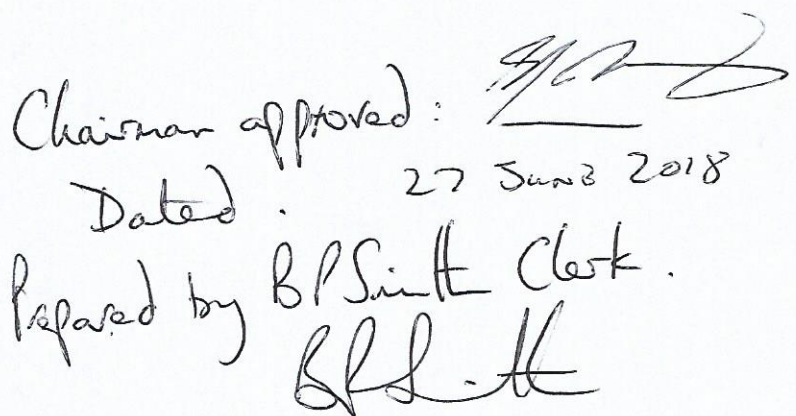 Chairman approved:
Dated: 27 June 2018
Prepared by BP Smith Clerk.
BP Smith